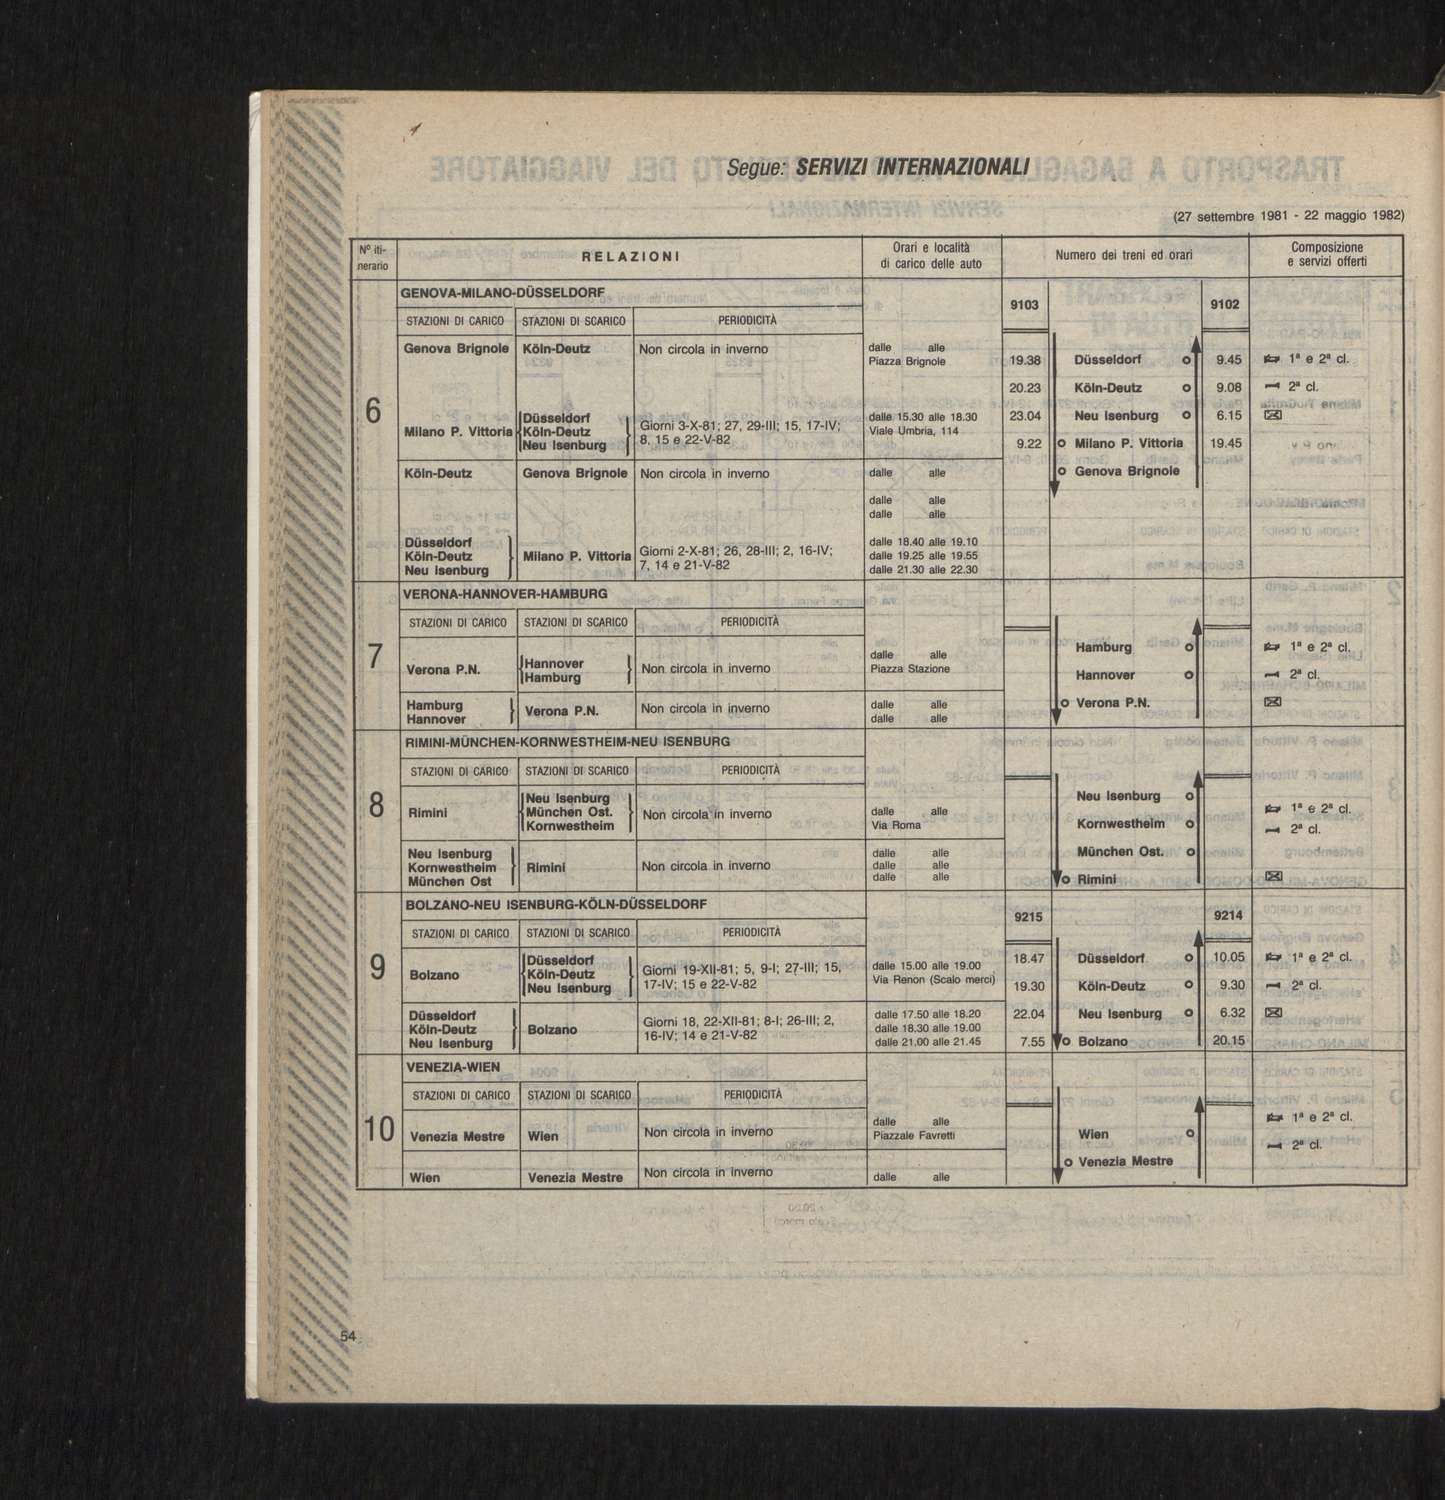 Segue: SERVIZI INTERNAZIONALI
(27 settembre 1981 - 22 maggio 1982)
Nº iti-
nerario
RELAZIONI
Orari e località
di carico delle auto
Numero dei treni ed orari
Composizione
e servizi offerti
6
GENOVA-MILANO-DÜSSELDORF
STAZIONI DI CARICO STAZIONI DI SCARICO PERIODICITÀ
9103 9102
Genova Brignole Köln-Deutz Non circola in inverno dalle alle
Piazza Brignole
Milano P. Vittoria Düsseldorf
Köln-Deutz
Neu Isenburg
Giorni 3-X-81; 27, 29-III; 15, 17-IV;
8, 15 e 22-V-82
dalle 15.30 alle 18.30
Viale Umbria, 114
Köln-Deutz Genova Brignole Non circola in inverno dalle alle
dalle alle
dalle alle
Düsseldorf
Köln-Deutz
Neu Isenburg
Milano P. Vittoria
Giorni 2-X-81; 26, 28-III; 2, 16-IV;
7, 14 e 21-V-82
dalle 18.40 alle 19.10
dalle 19.25 alle 19.55
dalle 21.30 alle 22.30
19.38 Düsseldorf 9.45 1ª e 2ª cl.
20.23 Köln-Deutz 9.08 2ª cl.
23.04 Neu Isenburg 6.15
9.22 Milano P. Vittoria 19.45
Genova Brignole
7
VERONA-HANNOVER-HAMBURG
STAZIONI DI CARICO STAZIONI DI SCARICO PERIODICITÀ
Verona P.N. Hannover
Hamburg
Non circola in inverno
dalle alle
Piazza Stazione
Hamburg
Hannover
Verona P.N. Non circola in inverno
dalle alle
dalle alle
Hamburg 1ª e 2ª cl.
Hannover 2ª cl.
Verona P.N.
8
RIMINI-MÜNCHEN-KORNWESTHEIM-NEU ISENBURG
STAZIONI DI CARICO STAZIONI DI SCARICO PERIODICITÀ
Rimini Neu Isenburg
München Ost.
Kornwestheim
Non circola in inverno
dalle alle
Via Roma
Neu Isenburg
Kornwestheim
München Ost
Rimini Non circola in inverno
dalle alle
dalle alle
dalle alle
Neu Isenburg 1ª e 2ª cl.
Kornwestheim 2ª cl.
München Ost.
Rimini
9
BOLZANO-NEU ISENBURG-KÖLN-DÜSSELDORF
STAZIONI DI CARICO STAZIONI DI SCARICO PERIODICITÀ
9215 9214
Bolzano Düsseldorf
Köln-Deutz
Neu Isenburg
Giorni 19-XII-81; 5, 9-I; 27-III; 15,
17-IV; 15 e 22-V-82
dalle 15.00 alle 19.00
Via Renon (Scalo merci)
Düsseldorf
Köln-Deutz
Neu Isenburg
Bolzano
Giorni 18, 22-XII-81; 8-I; 26-III; 2,
16-IV; 14 e 21-V-82
dalle 17.50 alle 18.20
dalle 18.30 alle 19.00
dalle 21.00 alle 21.45
18.47 Düsseldorf 10.05 1ª e 2ª cl.
19.30 Köln-Deutz 9.30 2ª cl.
22.04 Neu Isenburg 6.32
7.55 Bolzano 20.15
10
VENEZIA-WIEN
STAZIONI DI CARICO STAZIONI DI SCARICO PERIODICITÀ
Venezia Mestre Wien Non circola in inverno
dalle alle
Piazzale Favretti
Wien Venezia Mestre Non circola in inverno dalle alle
Wien 1ª e 2ª cl.
Venezia Mestre 2ª cl.
54